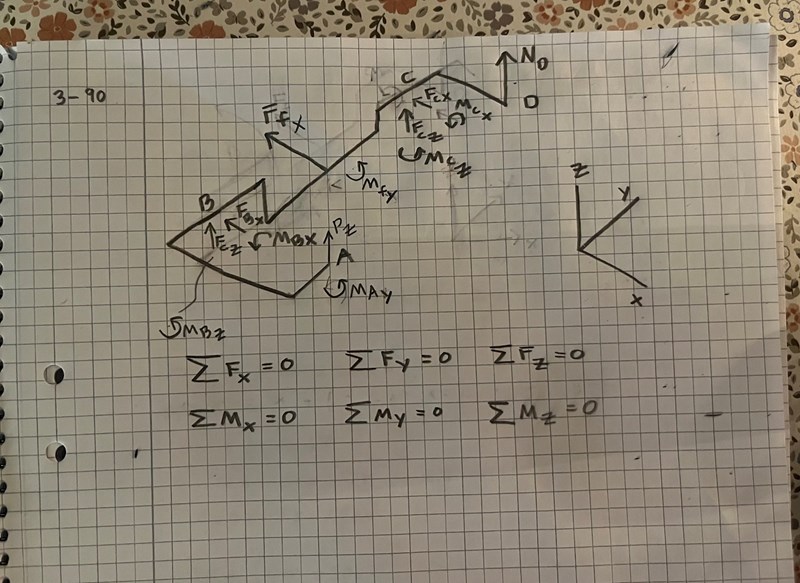 3-90
C
N₀
D
F̄fx
Fcx
Mcx
Fcz
Mcz
Mfy
B
FBx
Fcz
MBx
Pz
A
MAy
MBz
z
y
x
ΣFx = 0 ΣFy = 0 ΣFz = 0
ΣMx = 0 ΣMy = 0 ΣMz = 0